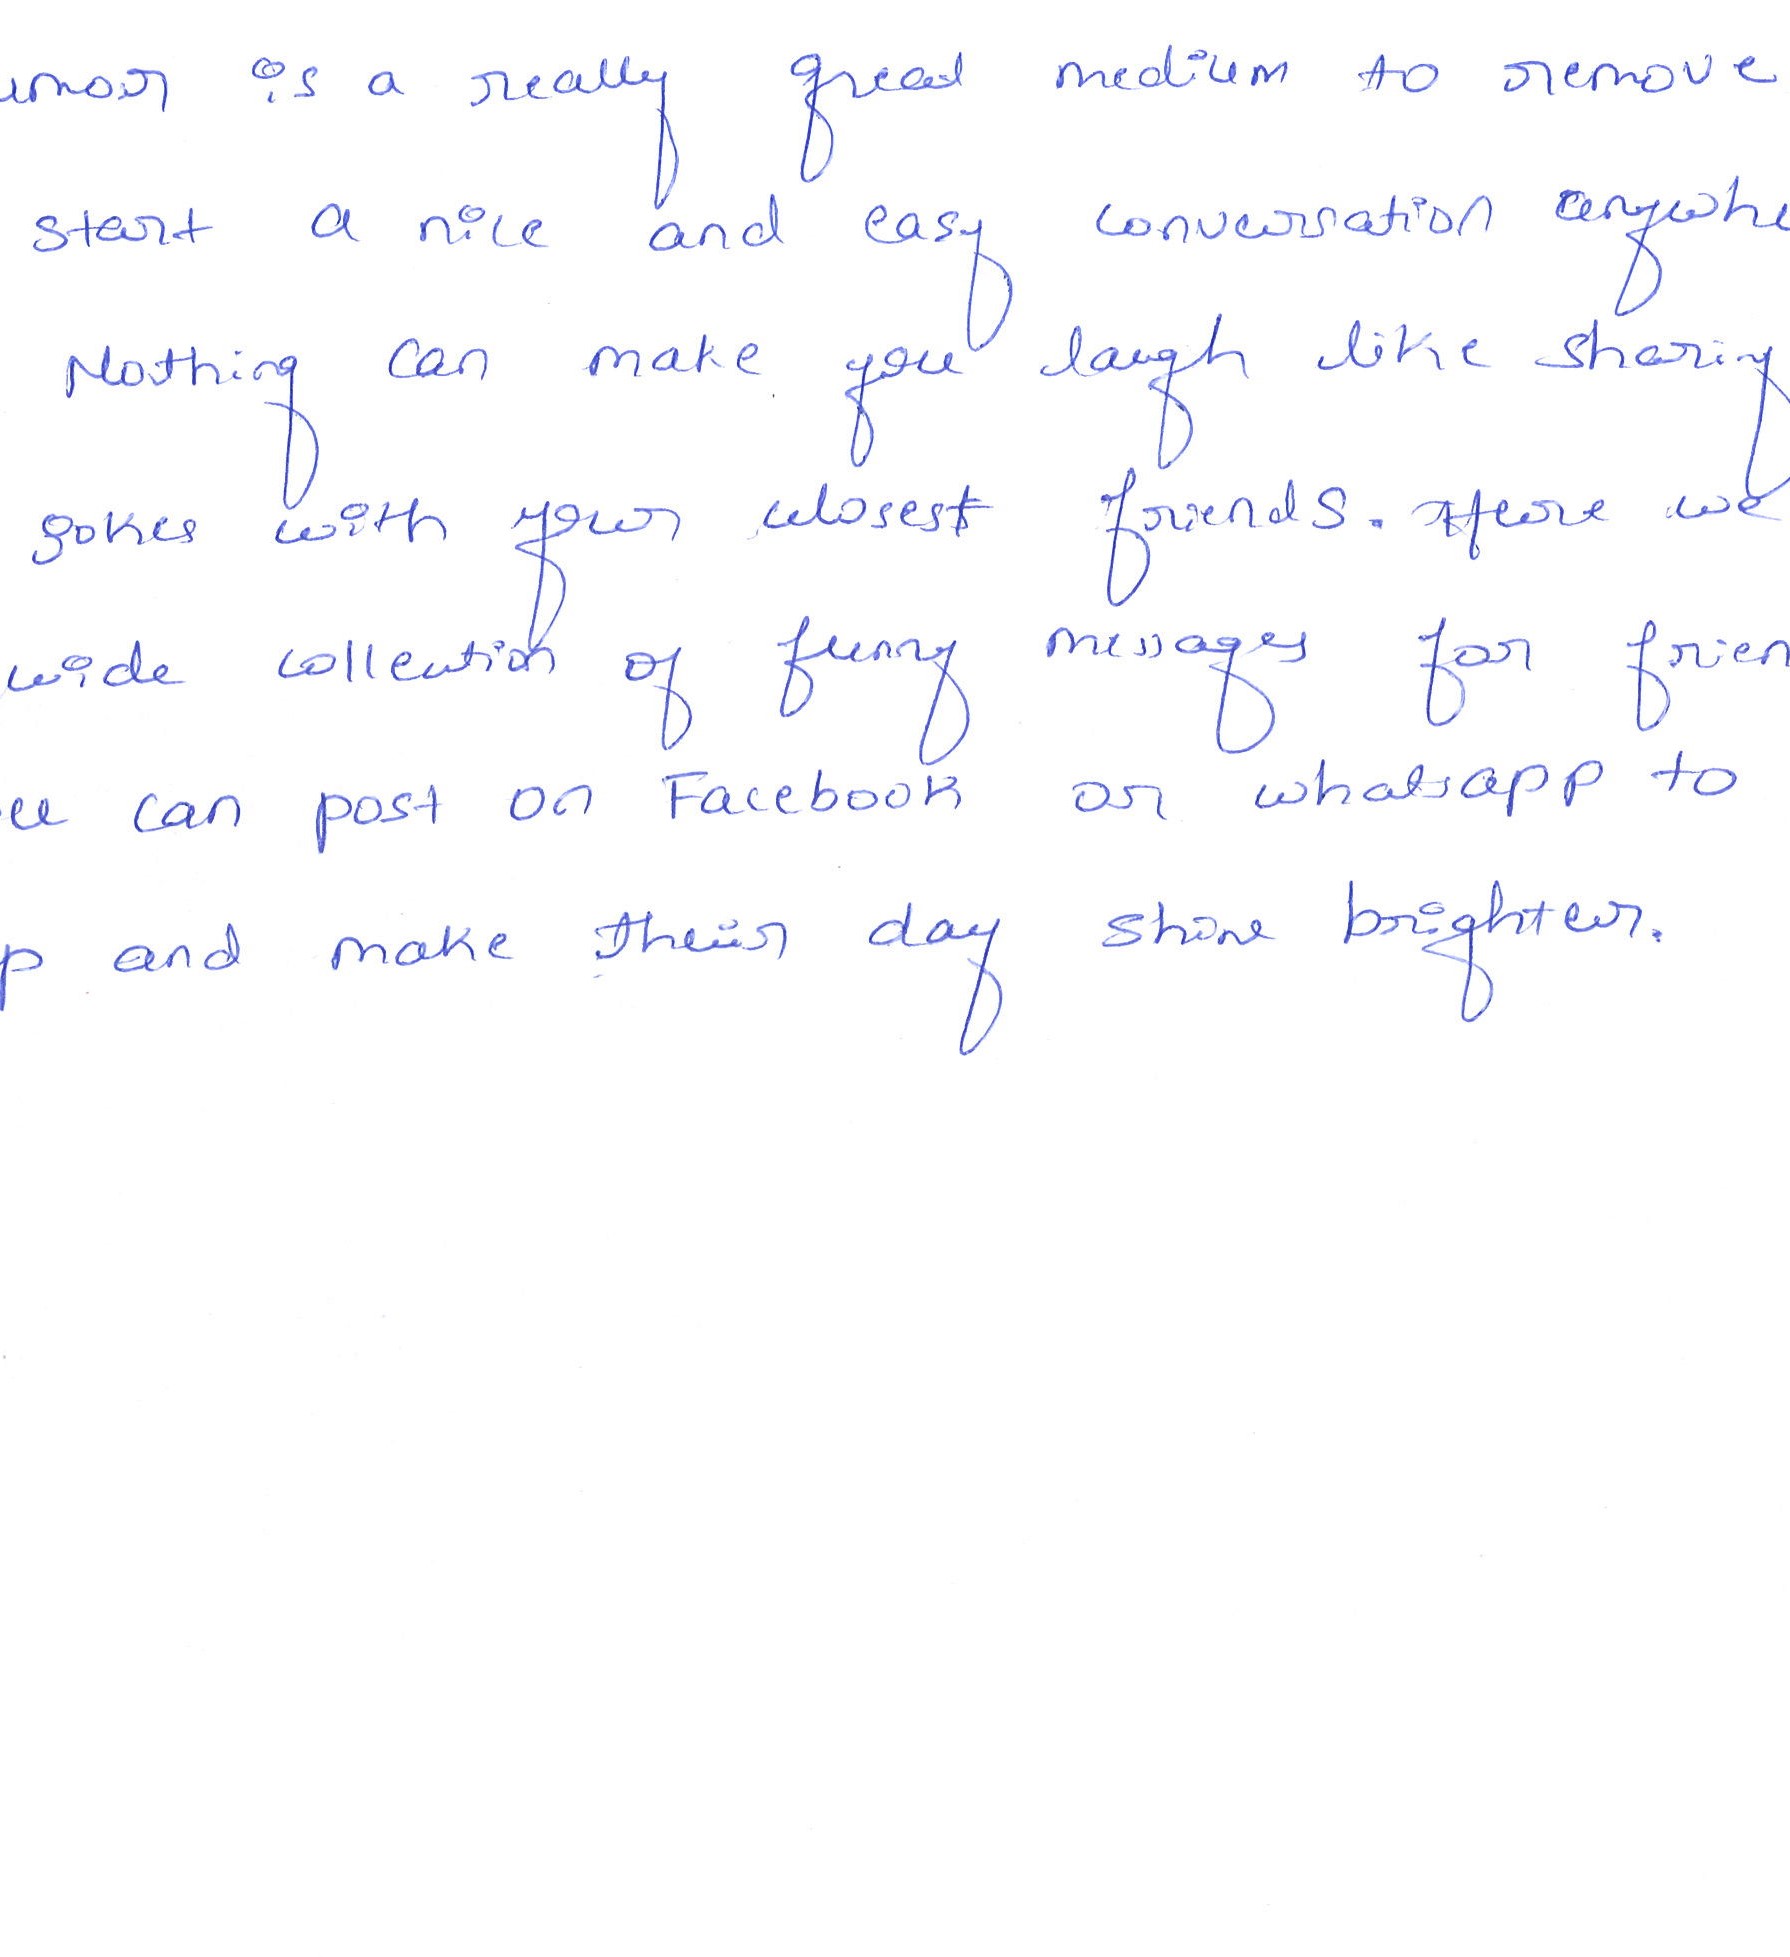 umor is a really great medium to remove
start a nice and easy conversation anywhe
Nothing can make you laugh like sharing
jokes with your closest friends. Here we
wide collection of funny messages for frien
ou can post on Facebook or whatsapp to
p and make their day shine brighter.